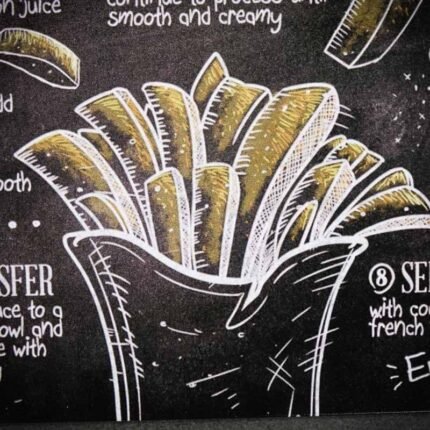 on juice
continue to process until
smooth and creamy
dd
ooth
SFER
ce to a
owl and
e with
8 SE
with co
french